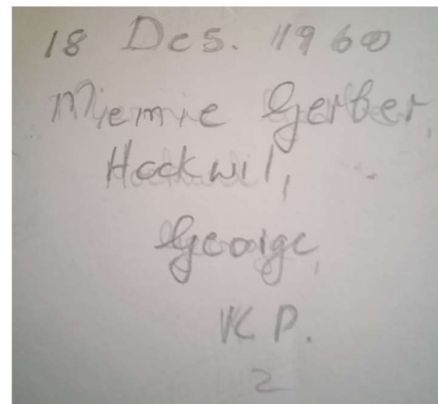 18 Des. 1960
Miemie Gerber,
Hoekwil,
George,
K P.
2